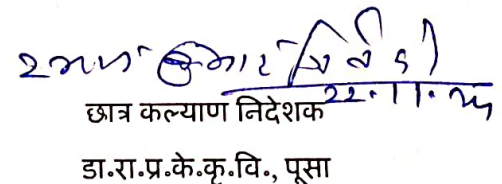 रमण कुमार त्रिवेदी
22.11.24
छात्र कल्याण निदेशक
डा.रा.प्र.के.कृ.वि., पूसा